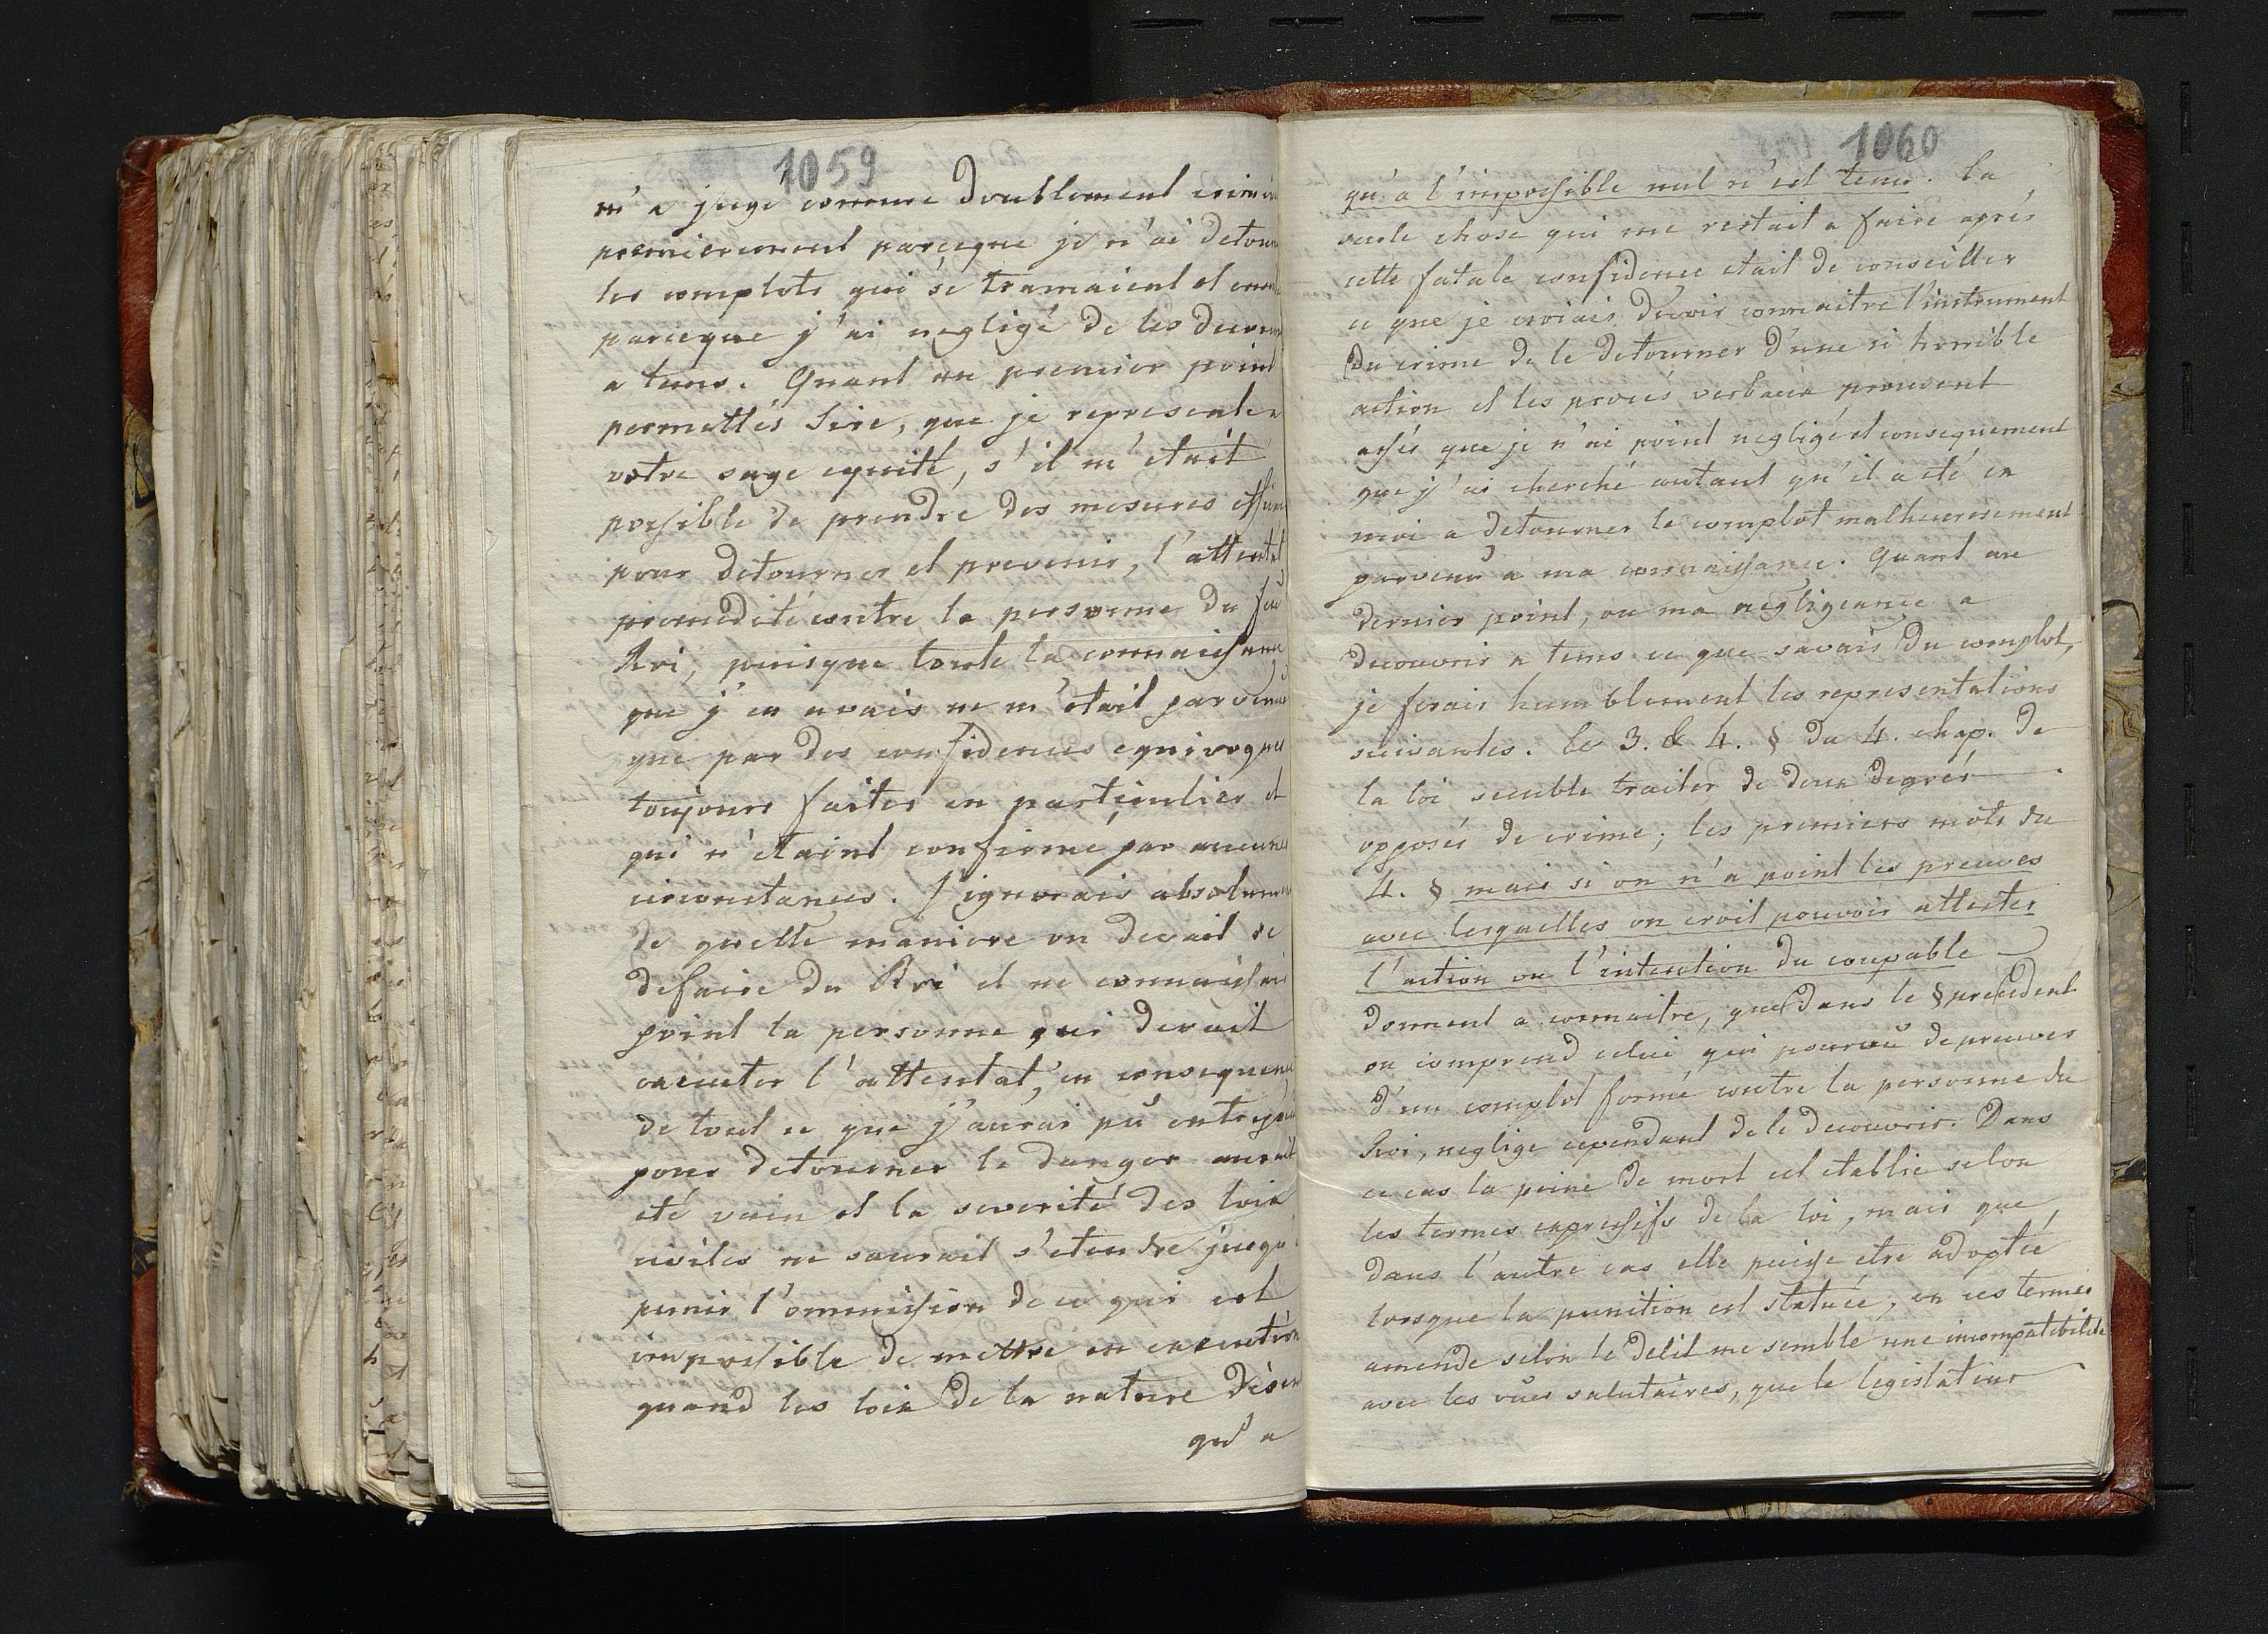 1059
m'a jugé comme doublement crimin
premierement parceque je n'ai detour
les complots qui se tramaient et
parceque j'ai negligé de les decouv
a tems. Quant au premier point
permettés Sire, que je represente a
votre sage equité, s'il m'etait
possible de prendre des mesures effica
pour detourner et prevenir, l'attentat
premedité contre la personne du feu
Roi, puisque toute la connaissance
que j'en avais ne m'etait parvenue
que par des confidences equivoques
toujours faites en particulier et
qui n'etaint confirmé par aucunes
circonstances. J'ignorais absolumen
de quelle maniere on devait se
defaire du Roi et ne connaissais
point la personne qui devait
executer l'attentat, en consequence
de tout ce que j'aurai pû entrepr
pour detourner le danger aurait
eté vain et la severité des loix
civiles ne saurait s'etendre jusqu'
punir l'ommission de ce qui est
impossible de mettre en execution
quand les loix de la nature disen
qu'a
1060
qu'a l'impossible nul n'est tenu. La
seule chose qui me restait a faire aprés
cette fatale confidence etait de conseiller
a que je croiais devoir connaitre l'instrument
du crime de le detourner d'une si horrible
action et les procés verbaux prouvent
assés que je n'ai point negligé et consequement
que j'ai cherché autant qu'il a eté en
moi a detourner le complot malheureusement
parvenu a ma connaissance. Quant au
dernier point, ou ma negligeance a
decouvrir a tems ce que savais du complot,
je ferais humblement les representations
suivantes. le 3. & 4. § du 4. chap. de
la loi semble traiter de deux degrés
opposés de crime; les premiers mots du
4. § mais si on n'a point les preuves
avec lesquelles on croit pouvoir attester
l'action ou l'intention du coupable
donnent a connaitre, que dans le § precedent
on comprend celui qui pourvû de preuves
d'un complot formé contre la personne du
Roi, neglige cependant de le decouvrir. Dans
ce cas la peine de mort est etablie selon
les termes expressifs de la loi, mais que
dans l'autre cas elle puisse etre adoptée
lorsque la punition est statuée, en ces termes
amende selon le delit me semble une incompatibilité
avec les vûes salutaires, que le legislateur